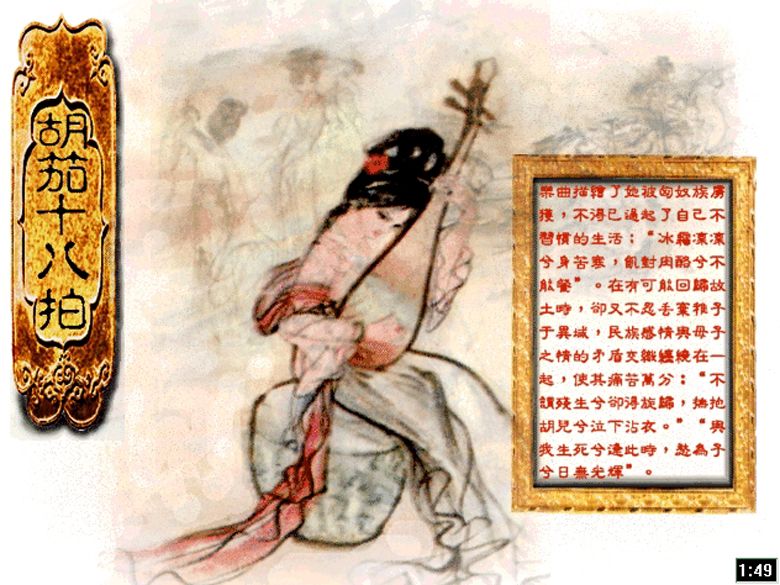 胡笳十八拍
樂曲描繪了她被匈奴族虜
獲，不得已過起了自己不
習慣的生活："冰霜凜凜
兮身苦寒，飢對肉酪兮不
能餐"。在有可能回歸故
土時，卻又不忍丟棄稚子
于異域，民族感情與母子
之情的矛盾交織纏繞在一
起，使其痛苦萬分："不
謂殘生兮卻得旋歸，撫抱
胡兒兮泣下沾衣。""與
我生死兮逢此時，愁為子
兮日無光輝"。
1:49